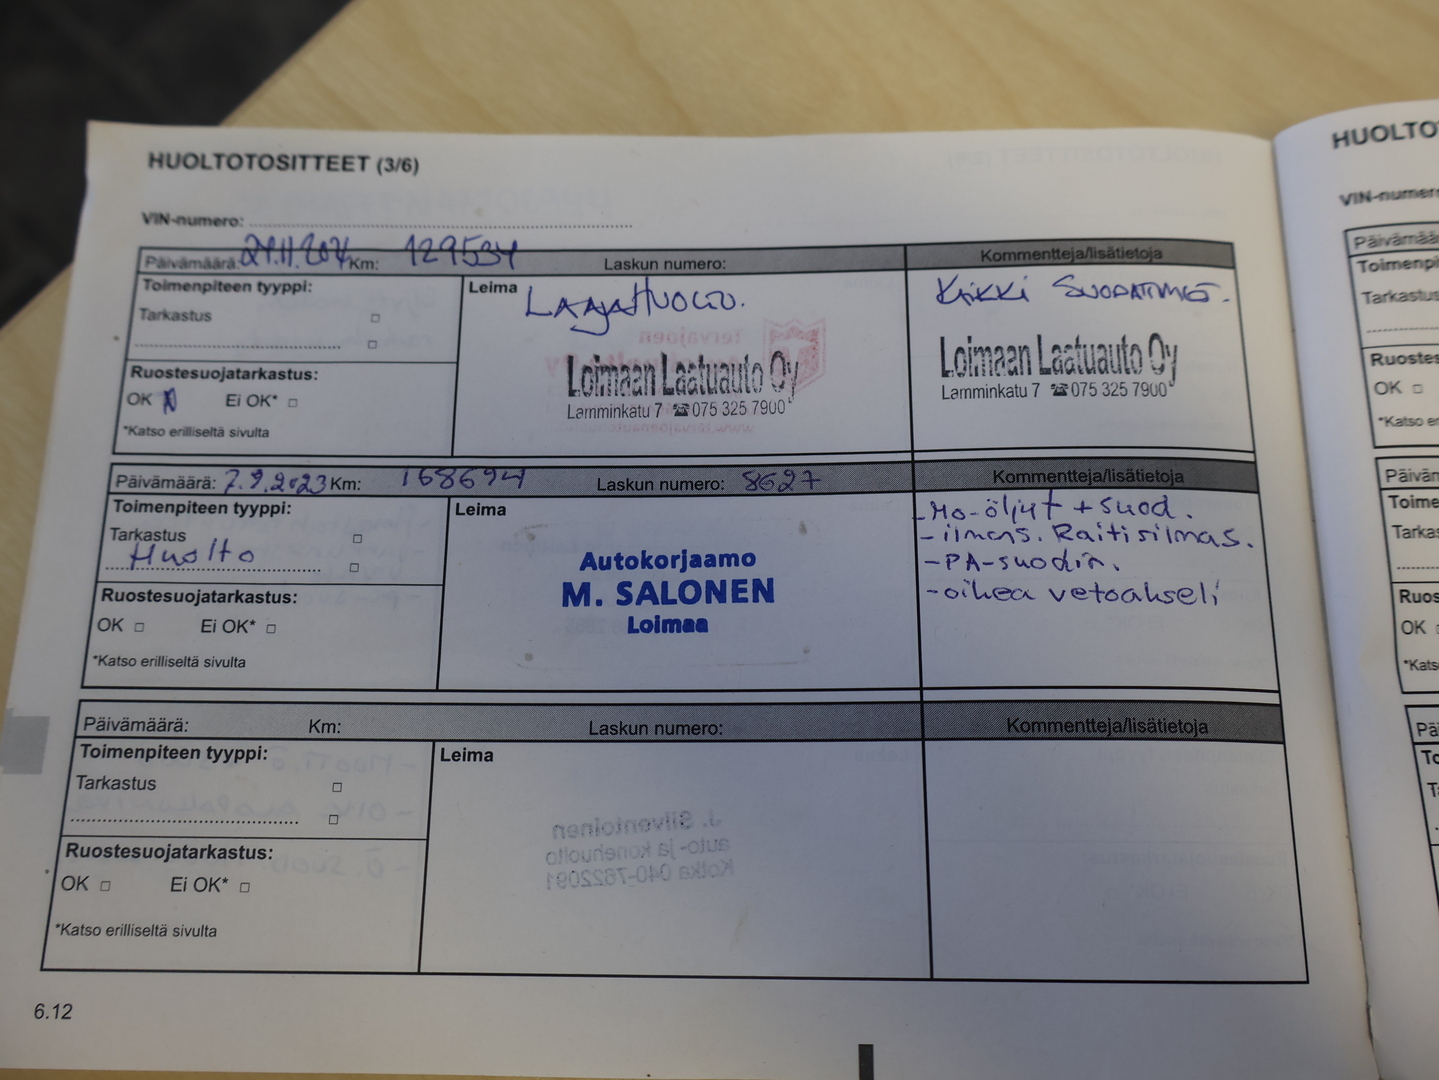 HUOLTOTOSITTEET (3/6)
VIN-numero:
Päivämäärä: Km: 129534 Laskun numero: Kommentteja/lisätietoja
Toimenpiteen tyyppi:
Tarkastus
Leima
Laajahuolto.
Loimaan Laatuauto Oy
Lamminkatu 7 ☎075 325 7900
Ruostesuojatarkastus:
OK Ei OK*
*Katso erilliseltä sivulta
Kaikki
Loimaan Laatuauto Oy
Lamminkatu 7 ☎075 325 7900
Päivämäärä: 7.9.2023 Km: 168694 Laskun numero: 8627 Kommentteja/lisätietoja
Toimenpiteen tyyppi:
Tarkastus
Huolto
Leima
Autokorjaamo
M. SALONEN
Loimaa
Ruostesuojatarkastus:
OK Ei OK*
*Katso erilliseltä sivulta
-Mo-öljyt + suod.
-ilmas. Raitisilmas.
-PA-suodin.
-oikea vetoakseli
Päivämäärä: Km: Laskun numero: Kommentteja/lisätietoja
Toimenpiteen tyyppi:
Tarkastus
Leima
Ruostesuojatarkastus:
OK Ei OK*
*Katso erilliseltä sivulta
J. Silventoinen
auto- ja konehuolto
Kotka 040-7622091
6.12
HUOLTO
VIN-numer
Päivämää
Toimenpi
Tarkastus
Ruostes
OK
*Katso er
Päivän
Toime
Tarka
Ruos
OK
*Kats
Pä
To